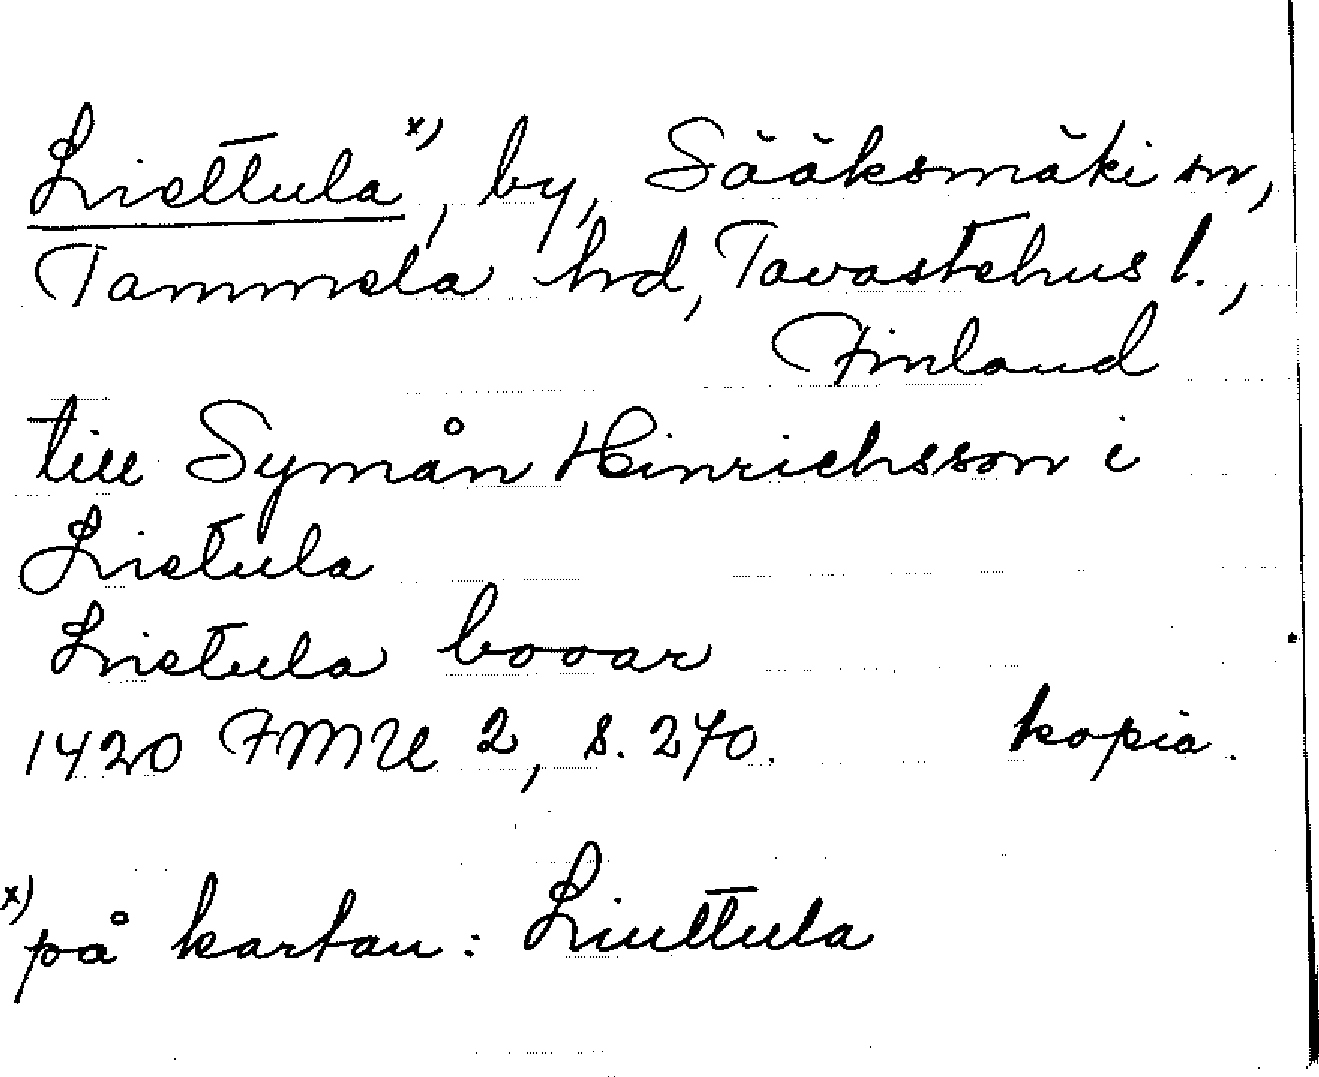 Liettula x), by, Sääksmäki sn,
Tammela hd, Tavastehus l.,
Finland
till Symån Hinrichsson i
Lietula
Lietula booar
1420 FMU 2, s. 270. kopia.
x) på kartan: Liuttula